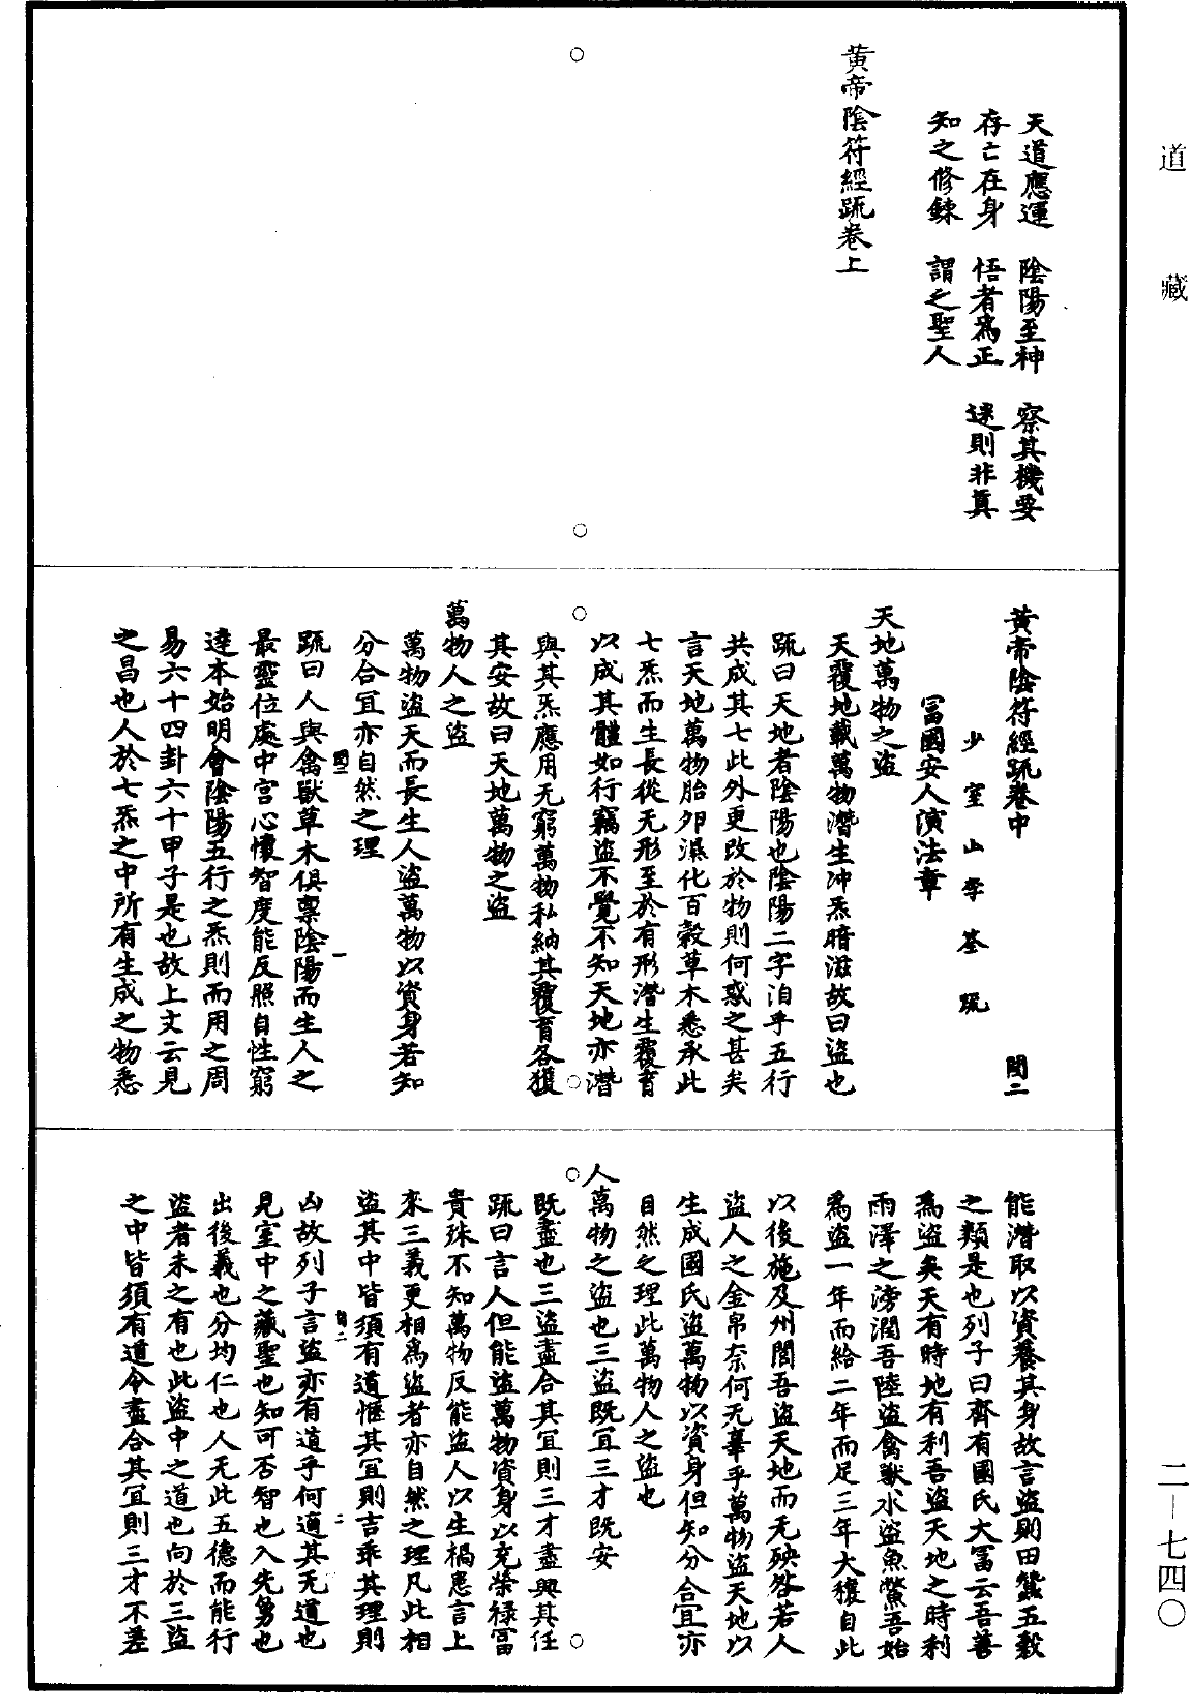 道藏
天道應運　陰陽至神　察其機要
存亡在身　悟者為正　迷則非真
知之修鍊　謂之聖人
黃帝陰符經疏卷上
黃帝陰符經疏卷中　閏二
少室山李筌疏
富國安人演法章
天地萬物之盜
天覆地載萬物潛生冲炁暗滋故曰盜也
疏曰天地者陰陽也陰陽二字洎乎五行
共成其七此外更改於物則何惑之甚矣
言天地萬物胎卵濕化百穀草木悉承此
七炁而生長從无形至於有形潛生覆育
以成其體如行竊盜不覺不知天地亦潛
與其炁應用无窮萬物私納其覆育各獲
其安故曰天地萬物之盜
萬物人之盜
萬物盜天而長生人盜萬物以資身若知
分合冝亦自然之理
閏二　一
疏曰人與禽獸草木俱禀陰陽而生人之
最靈位處中宫心懷智度能反照自性窮
達本始明會陰陽五行之炁則而用之周
易六十四卦六十甲子是也故上文云見
之昌也人於七炁之中所有生成之物悉
能潛取以資養其身故言盜則田蠶五穀
之類是也列子曰齊有國氏大富云吾善
為盜矣天有時地有利吾盜天地之時利
雨澤之滂潤吾陸盜禽獸水盜魚鱉吾始
為盜一年而給二年而足三年大穰自此
以後施及州閭吾盜天地而无殃咎若人
盜人之金帛奈何无辜乎萬物盜天地以
生成國氏盜萬物以資身但知分合冝亦
自然之理此萬物人之盜也
人萬物之盜也三盜既冝三才既安
既盡也三盜盡合其冝則三才盡興其任
疏曰言人但能盜萬物資身以充榮禄富
貴殊不知萬物反能盜人以生禍患言上
來三義更相為盜者亦自然之理凡此相
盜其中皆須有道愜其冝則吉乖其理則
閏二　二
凶故列子言盜亦有道乎何適其无道也
見室中之藏聖也知可否智也入先勇也
出後義也分均仁也人无此五德而能行
盜者未之有也此盜中之道也向於三盜
之中皆須有道令盡合其冝則三才不差
二—七四〇